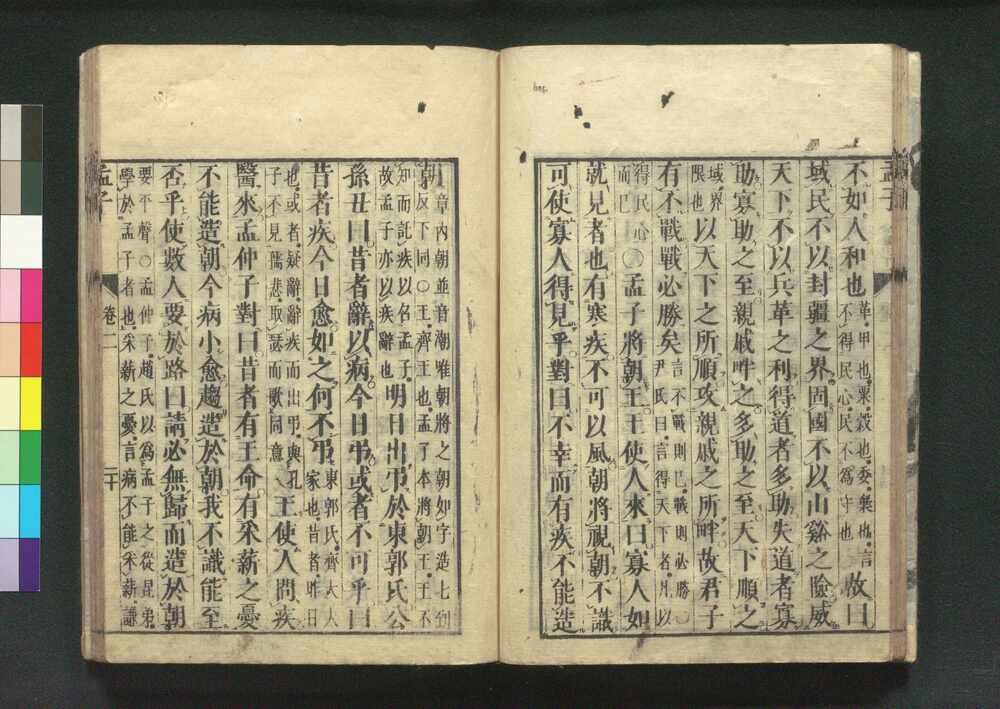 孟子
不如人和也革甲也粟穀也委棄也言
不得民心民不爲守也故曰
域民不以封疆之界固國不以山谿之險威
天下不以兵革之利得道者多助失道者寡
助寡助之至親戚畔之多助之至天下順之
域界
限也以天下之所順攻親戚之所畔故君子
有不戰戰必勝矣言不戰則已戰則必勝○
尹氏曰言得天下者凡以
得民心
而已○孟子將朝王王使人來曰寡人如
就見者也有寒疾不可以風朝將視朝不識
可使寡人得見乎對曰不幸而有疾不能造
朝章内朝並音潮唯朝將之朝如字造七到
反下同○王齊王也孟子本將朝王王不
知而託疾以召孟子
故孟子亦以疾辭也明日出弔於東郭氏公
孫丑曰昔者辭以病今日弔或者不可乎曰
昔者疾今日愈如之何不弔東郭氏齊大夫
家也昔者昨日
也或者疑辭辭疾而出弔與孔
子不見孺悲取瑟而歌同意王使人問疾
醫來孟仲子對曰昔者有王命有采薪之憂
不能造朝今病小愈趨造於朝我不識能至
否乎使數人要於路曰請必無歸而造於朝
要平聲○孟仲子趙氏以爲孟子之從昆弟
學於孟子者也采薪之憂言病不能采薪謙
孟子
卷二
二十